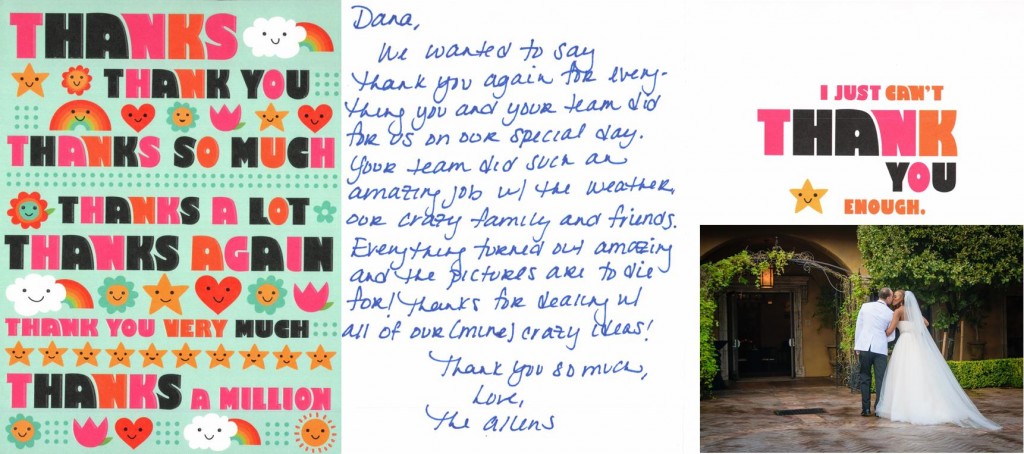 THANKS
THANK YOU
THANKS SO MUCH
THANKS A LOT
THANKS AGAIN
THANK YOU VERY MUCH
THANKS A MILLION
Dana,
We wanted to say
thank you again for every-
thing you and your team did
for us on our special day.
Your team did such an
amazing job w/ the weather,
our crazy family and friends.
Everything turned out amazing
and the pictures are to die
for! Thanks for dealing w/
all of our (mine) crazy ideas!
Thank you so much,
Love,
The Allens
I JUST CAN'T
THANK
YOU
ENOUGH.